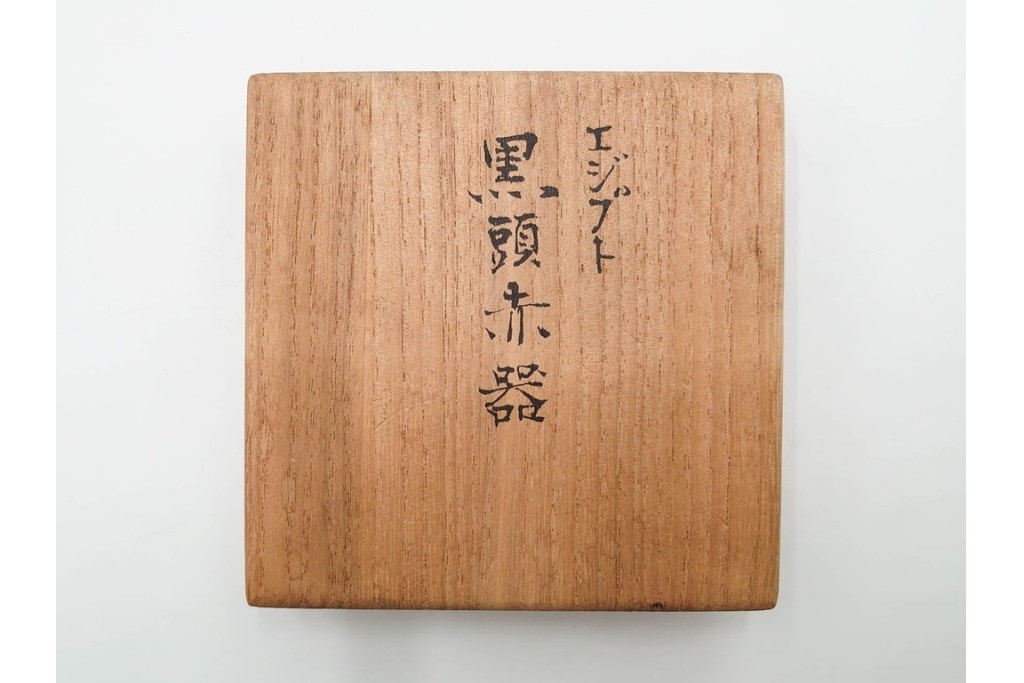 エジプト
黒頭赤器